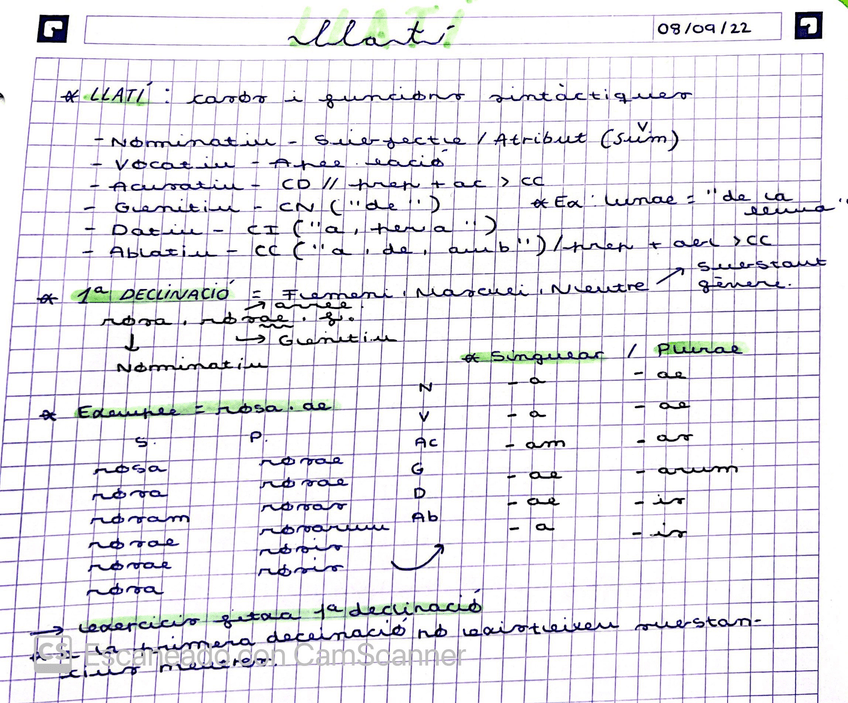 Llatí
08/09/22
* LLATÍ : casos i funcions sintàctiques
- Nominatiu - Subjecte / Atribut (Sum) V
- Vocatiu - Apel·lació
- Acusatiu - CD // prep + ac > CC
- Genitiu - CN ("de") * Ex: lunae = "de la lluna"
- Datiu - CI ("a, per a")
- Ablatiu - CC ("a, de, amb") / prep + abl > CC
* 1ª DECLINACIÓ = Femení, Masculí, Neutre → substant gènere.
→ arrel.
rosa, rosae, f.
↓ → Genitiu
Nominatiu
* Singular / Plural
N - a - ae
V - a - ae
Ac - am - as
G - ae - arum
D - ae - is
Ab - a - is
* Exemple = rosa. ae
S. P.
rosa rosae
rosa rosae
rosam rosas
rosae rosarum
rosae rosis
rosa rosis
→ exercicis fitxa 1ª declinació
* - La primera declinació no existeixen substan-
tius neutres.
CS Escaneado con CamScanner